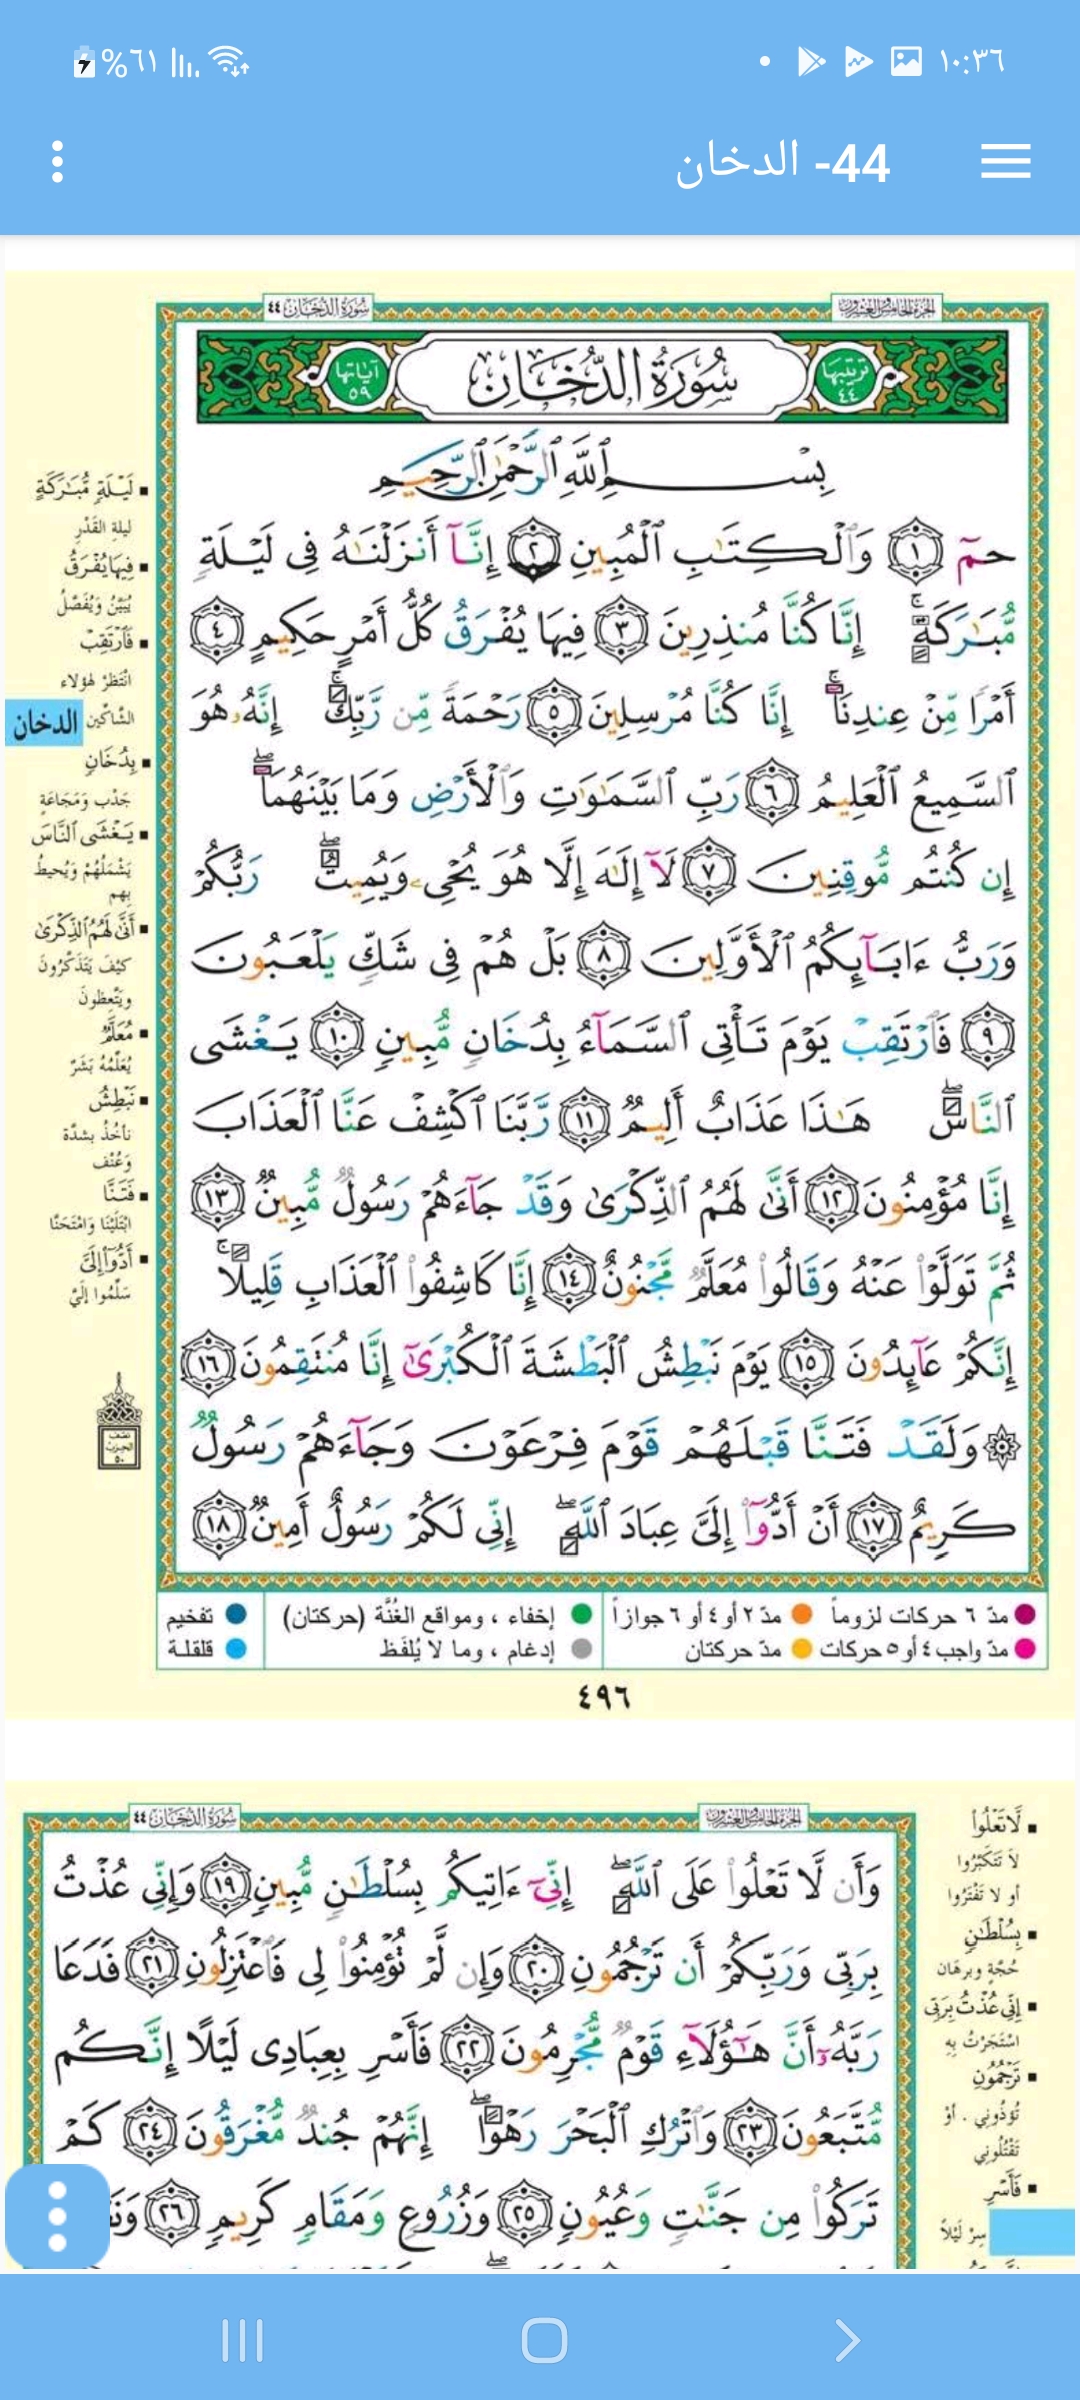 ١٠:٣٦
%٦١
44- الدخان
الجزء الخامس والعشرون
سُورَةُ الدُّخَان ٤٤
ترتيبها ٤٤
سُورَةُ الدُّخَان
آياتها ٥٩
بِسْمِ ٱللَّهِ ٱلرَّحْمَٰنِ ٱلرَّحِيمِ
حمٓ ١ وَٱلْكِتَٰبِ ٱلْمُبِينِ ٢ إِنَّآ أَنزَلْنَٰهُ فِى لَيْلَةٍ
مُّبَٰرَكَةٍۚ إِنَّا كُنَّا مُنذِرِينَ ٣ فِيهَا يُفْرَقُ كُلُّ أَمْرٍ حَكِيمٍ ٤
أَمْرًا مِّنْ عِندِنَآۚ إِنَّا كُنَّا مُرْسِلِينَ ٥ رَحْمَةً مِّن رَّبِّكَۚ إِنَّهُۥ هُوَ
ٱلسَّمِيعُ ٱلْعَلِيمُ ٦ رَبِّ ٱلسَّمَٰوَٰتِ وَٱلْأَرْضِ وَمَا بَيْنَهُمَآۖ
إِن كُنتُم مُّوقِنِينَ ٧ لَآ إِلَٰهَ إِلَّا هُوَ يُحْىِۦ وَيُمِيتُۖ رَبُّكُمْ
وَرَبُّ ءَابَآئِكُمُ ٱلْأَوَّلِينَ ٨ بَلْ هُمْ فِى شَكٍّ يَلْعَبُونَ
٩ فَٱرْتَقِبْ يَوْمَ تَأْتِى ٱلسَّمَآءُ بِدُخَانٍ مُّبِينٍ ١٠ يَغْشَى
ٱلنَّاسَۖ هَٰذَا عَذَابٌ أَلِيمٌ ١١ رَّبَّنَا ٱكْشِفْ عَنَّا ٱلْعَذَابَ
إِنَّا مُؤْمِنُونَ ١٢ أَنَّىٰ لَهُمُ ٱلذِّكْرَىٰ وَقَدْ جَآءَهُمْ رَسُولٌ مُّبِينٌ ١٣
ثُمَّ تَوَلَّوْا۟ عَنْهُ وَقَالُوا۟ مُعَلَّمٌ مَّجْنُونٌ ١٤ إِنَّا كَاشِفُوا۟ ٱلْعَذَابِ قَلِيلًاۚ
إِنَّكُمْ عَآئِدُونَ ١٥ يَوْمَ نَبْطِشُ ٱلْبَطْشَةَ ٱلْكُبْرَىٰٓ إِنَّا مُنتَقِمُونَ ١٦
۞ وَلَقَدْ فَتَنَّا قَبْلَهُمْ قَوْمَ فِرْعَوْنَ وَجَآءَهُمْ رَسُولٌ
كَرِيمٌ ١٧ أَنْ أَدُّوٓا۟ إِلَىَّ عِبَادَ ٱللَّهِۖ إِنِّى لَكُمْ رَسُولٌ أَمِينٌ ١٨
لَيْلَةٍ مُّبَٰرَكَةٍ
ليلة القَدْرِ
فِيهَا يُفْرَقُ
يُبَيَّنُ وَيُفَصَّلُ
فَٱرْتَقِبْ
انْتَظِرْ لهؤلاء
الشَّاكِّين
الدخان
بِدُخَانٍ
جَدْب وَمَجَاعَةٍ
يَغْشَى ٱلنَّاسَ
يَشْمَلُهُمْ وَيُحيطُ
بِهم
أَنَّىٰ لَهُمُ ٱلذِّكْرَىٰ
كيْفَ يَتَذكَّرُونَ
ويَتَّعِظونَ
مُعَلَّمٌ
يُعَلِّمُهُ بَشَرٌ
نَبْطِشُ
نأخُذُ بشدَّة
وَعُنْف
فَتَنَّا
ابْتَلَيْنَا وَامْتَحَنَّا
أَدُّوٓا۟ إِلَىَّ
سَلِّمُوا إلَيَّ
نصف
الحزب
٥٠
مدّ ٦ حركات لزوماً
مدّ ٢ أو ٤ أو ٦ جوازاً
إخفاء ، ومواقع الغُنَّة (حركتان)
تفخيم
مدّ واجب ٤ أو ٥ حركات
مدّ حركتان
إدغام ، وما لا يُلفَظ
قلقلة
٤٩٦
الجزء الخامس والعشرون
سُورَةُ الدُّخَان ٤٤
وَأَن لَّا تَعْلُوا۟ عَلَى ٱللَّهِۖ إِنِّىٓ ءَاتِيكُم بِسُلْطَٰنٍ مُّبِينٍ ١٩ وَإِنِّى عُذْتُ
بِرَبِّى وَرَبِّكُمْ أَن تَرْجُمُونِ ٢٠ وَإِن لَّمْ تُؤْمِنُوا۟ لِى فَٱعْتَزِلُونِ ٢١ فَدَعَا
رَبَّهُۥٓ أَنَّ هَٰٓؤُلَآءِ قَوْمٌ مُّجْرِمُونَ ٢٢ فَأَسْرِ بِعِبَادِى لَيْلًا إِنَّكُم
مُّتَّبَعُونَ ٢٣ وَٱتْرُكِ ٱلْبَحْرَ رَهْوًاۖ إِنَّهُمْ جُندٌ مُّغْرَقُونَ ٢٤ كَمْ
تَرَكُوا۟ مِن جَنَّٰتٍ وَعُيُونٍ ٢٥ وَزُرُوعٍ وَمَقَامٍ كَرِيمٍ ٢٦
لَّا تَعْلُوا۟
لاَ تَتَكَبَّرُوا
أو لا تَفْتَرُوا
بِسُلْطَٰنٍ
حُجَّةٍ وبرهَان
إِنِّى عُذْتُ بِرَبِّى
اسْتَجَرْتُ بِهِ
تَرْجُمُونِ
تُؤذُونِي . أوْ
تَقْتُلُوني
فَأَسْرِ
سِرْ لَيْلاً